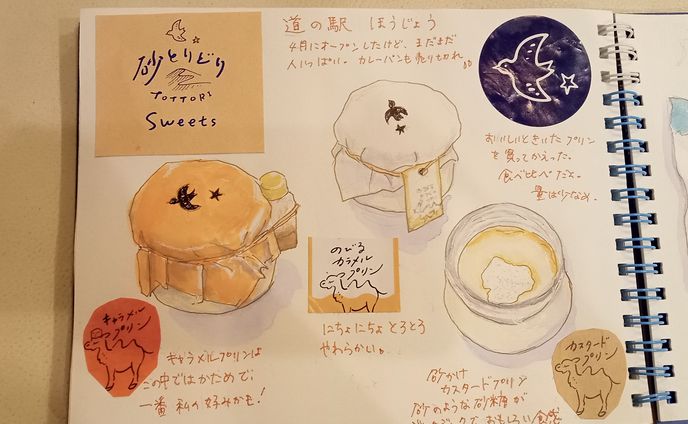 砂とりどり
TOTTORI
Sweets
道の駅 ほうじょう
4月にオープンしたけど、まだまだ
人いっぱい。カレーパンも売り切れ。
おいしいときいたプリン
を買ってかえった。
食べ比べだよ。
量は少なめ。
のびる
カラメル
プリン
にちょにちょ とろとろ
やわらかい。
キャラメル
プリン
キャラメルプリンは
この中ではかためで、
一番 私の好みかも!
カスタード
プリン
砂かけ
カスタードプリン
砂のような砂糖が
おもしろい食感